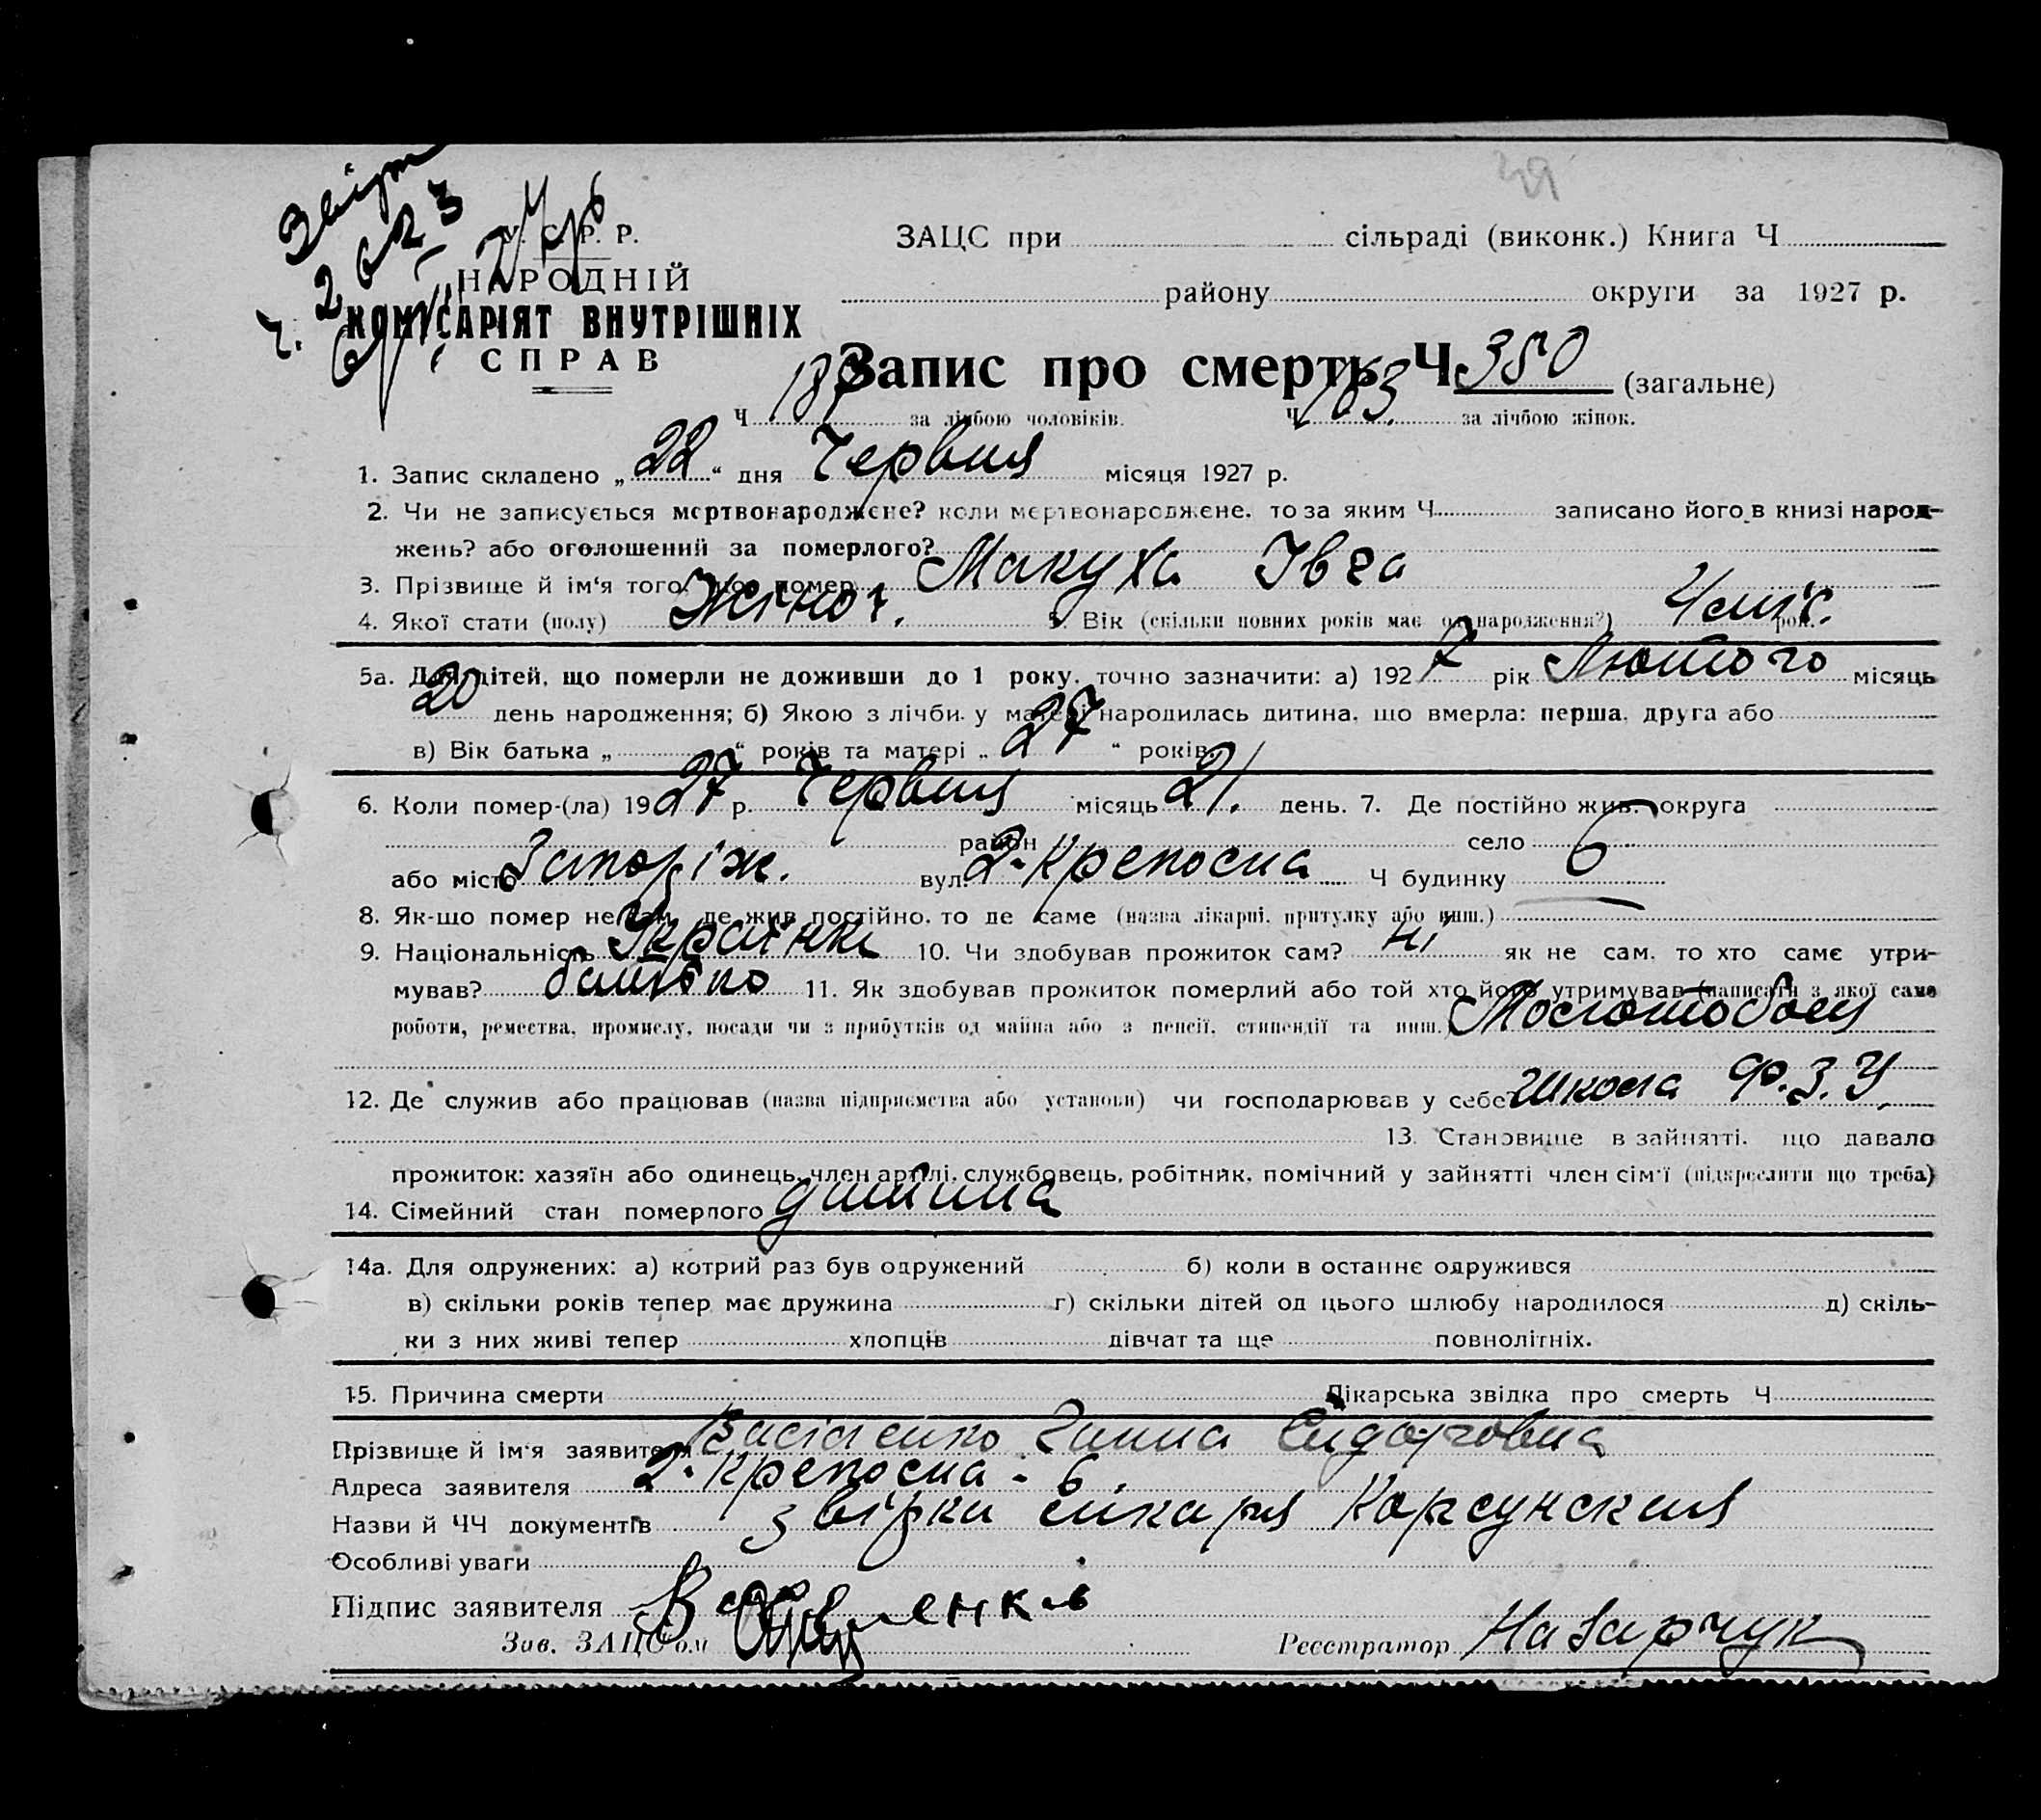 У. С. Р. Р.
НАРОДНІЙ
КОМІСАРІЯТ ВНУТРІШНІХ
СПРАВ
ЗАЦС при сільраді (виконк.) Книга Ч
району округи за 1927 р.
Запис про смерть Ч 380 (загальне)
Ч за лічбою чоловіків. Ч 183 за лічбою жінок.
1. Запис складено „22“ дня Червня місяця 1927 р.
2. Чи не записується мертвонароджене? коли мертвонароджене, то за яким Ч записано його в книзі народ-
жень? або оголошений за померлого?
3. Прізвище й ім‘я того, що помер Макуха Івга
4. Якої стати (полу) Жіноч. 5. Вік (скільки повних років має од народження?) 4 міс. рок.
5а. Для дітей, що померли не доживши до 1 року, точно зазначити: а) 1927 рік Лютого місяць
20 день народження; б) Якою з лічби у матері народилась дитина, що вмерла: перша, друга або
в) Вік батька „ “ років та матері „27“ років.
6. Коли помер-(ла) 1927 р. Червня місяць 21. день. 7. Де постійно жив: округа
район село
або місто Запоріж. вул. 2-Крепосна Ч будинку 6
8. Як-що помер не там, де жив постійно, то де саме (назва лікарні, притулку або инш.)
9. Національність Українка 10. Чи здобував прожиток сам? ні як не сам, то хто саме утри-
мував? батько 11. Як здобував прожиток померлий або той хто його утримував (написати з якої саме
роботи, ремества, промислу, посади чи з прибутків од майна або з пенсії, стипендії та инш.)
12. Де служив або працював (назва підприємства або установи) чи господарював у себе? Школа Ф.З.У.
13. Становище в зайнятті, що давало
прожиток: хазяїн або одинець, член артілі, службовець, робітник, помічний у зайнятті член сім‘ї (підкреслити що треба)
14. Сімейний стан померлого дитина
14а. Для одружених: а) котрий раз був одружений б) коли в останнє одружився
в) скільки років тепер має дружина г) скільки дітей од цього шлюбу народилося д) скіль-
ки з них живі тепер хлопців дівчат та ще повнолітніх.
15. Причина смерти Лікарська звідка про смерть Ч
Прізвище й ім‘я заявителя Василенко Ганна Сидоровна
Адреса заявителя 2-Крепосна - 6
Назви й ЧЧ документів звірка лікаря Корсунския
Особливі уваги
Підпис заявителя
Зав. ЗАЦС‘ом Реєстратор Назарчук